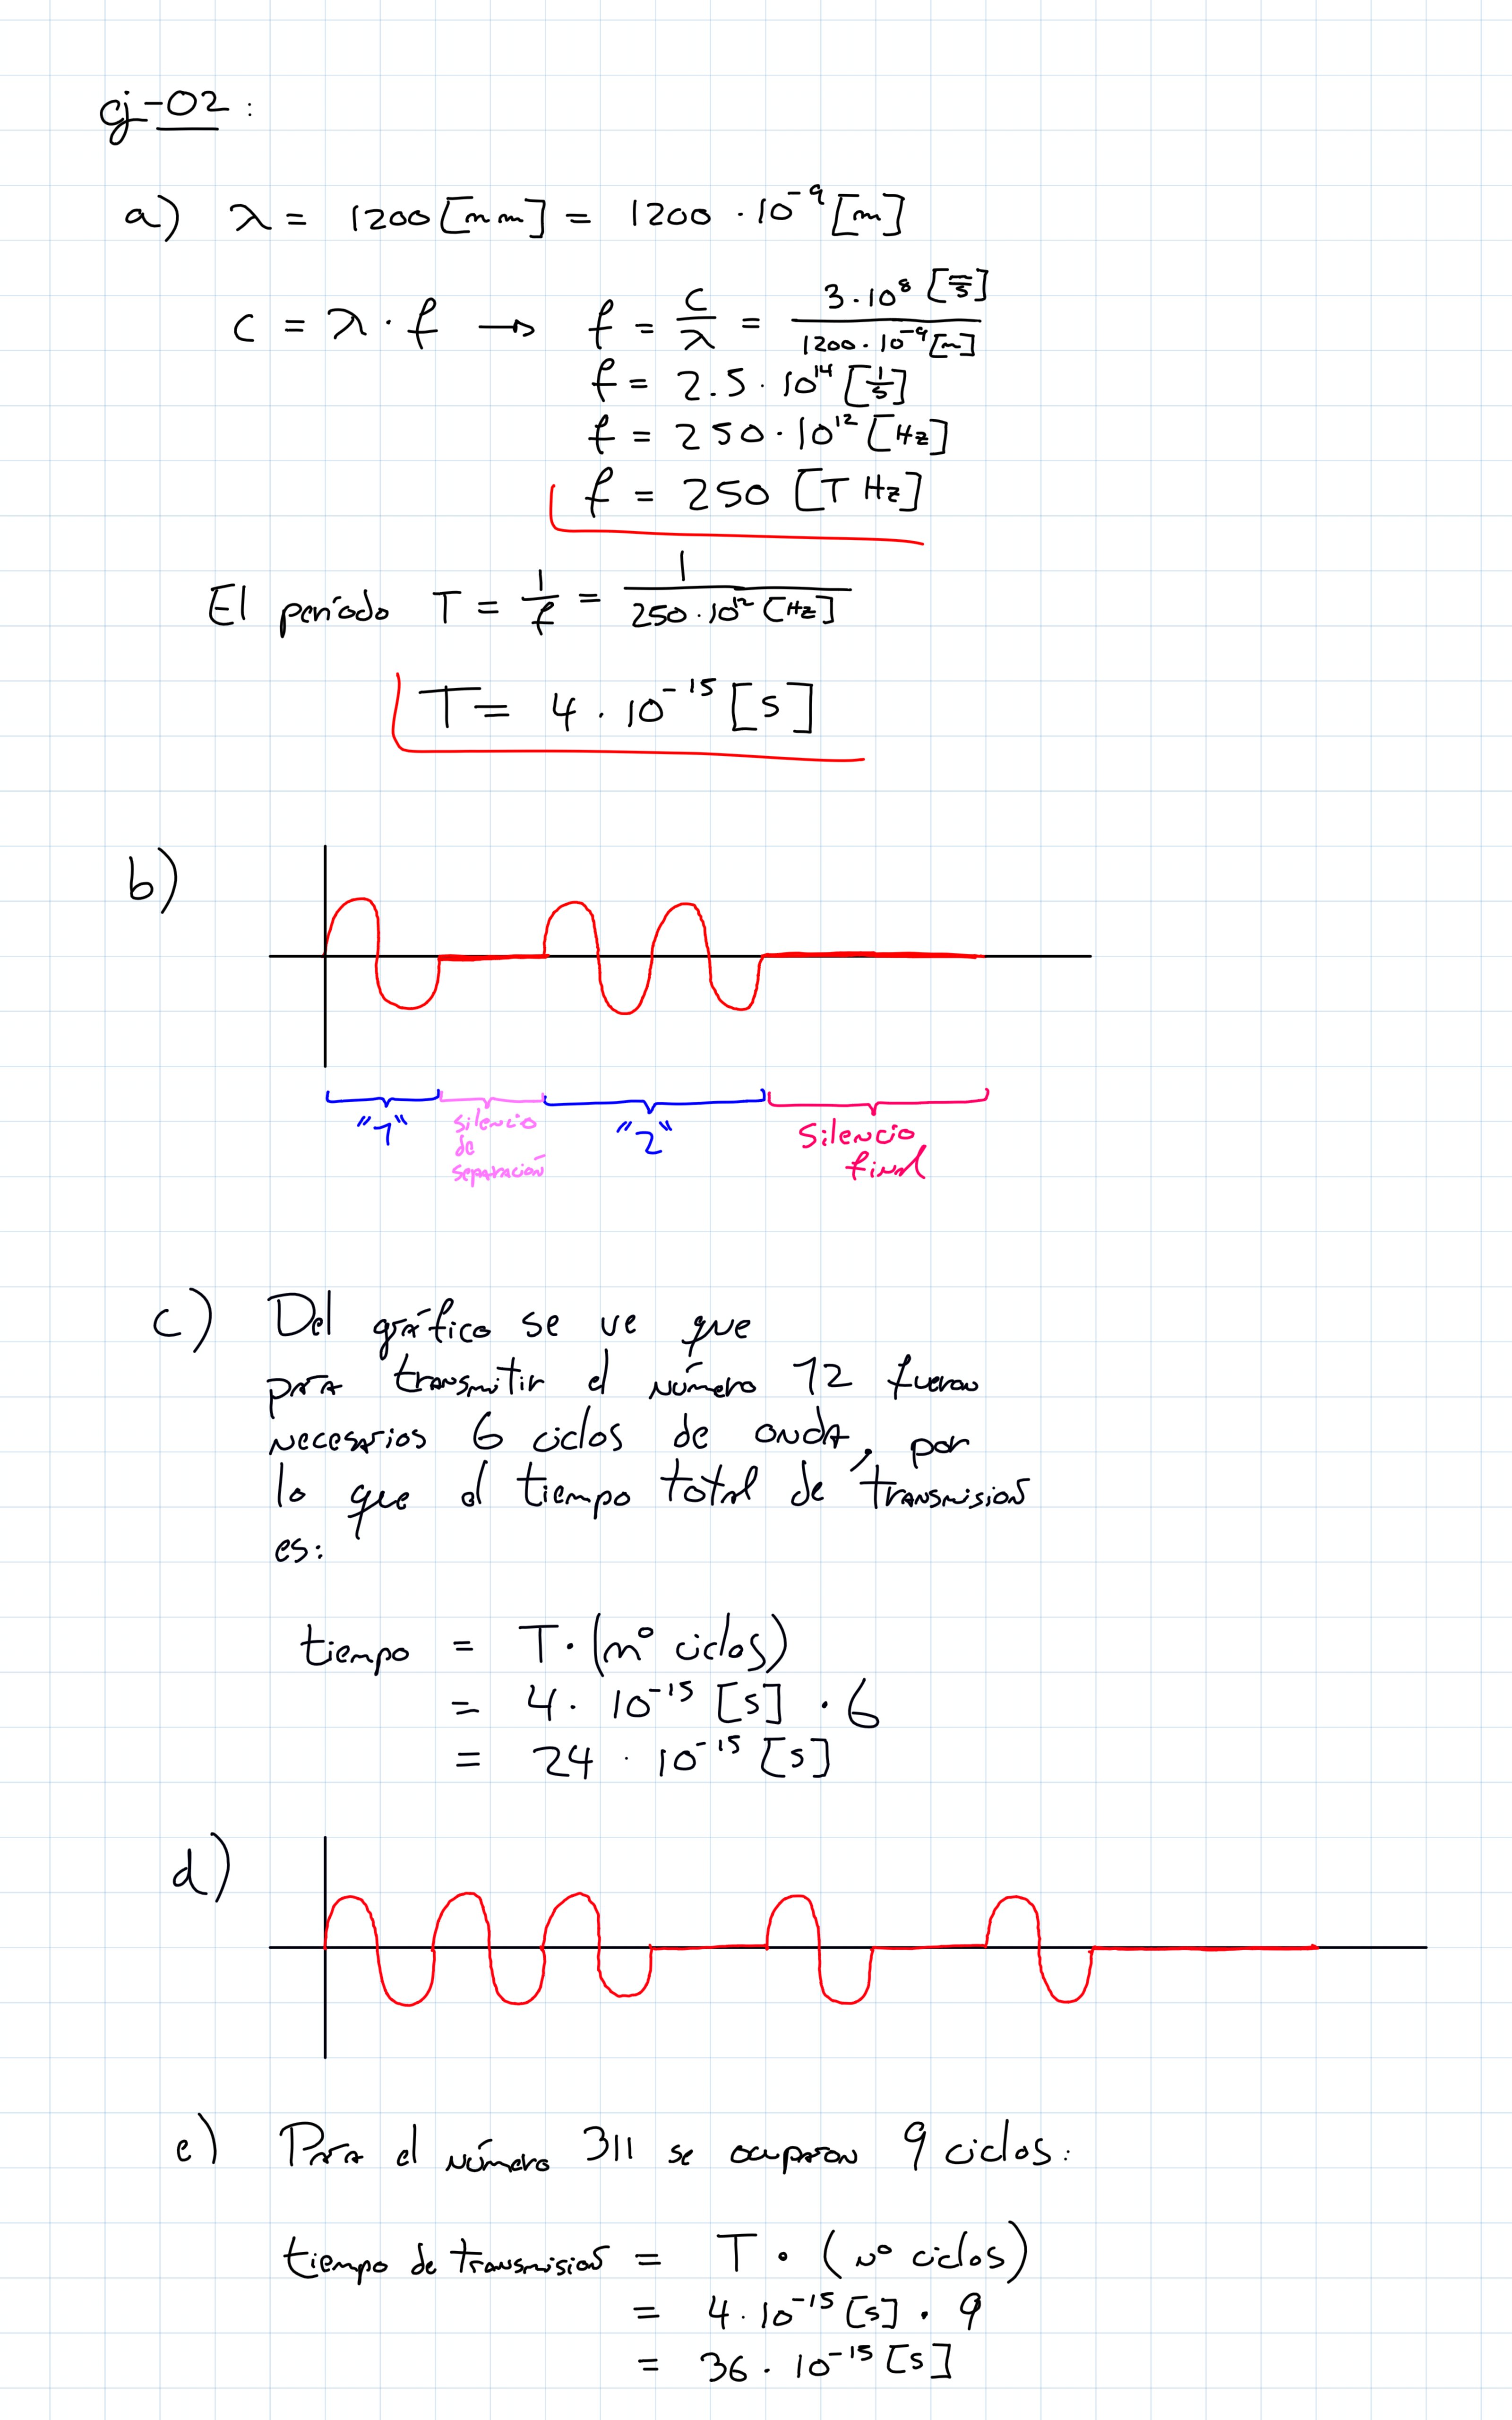 ej-02:
a) λ = 1200 [nm] = 1200 · 10⁻⁹ [m]
c = λ · f → f = c/λ = 3·10⁸ [m/s] / 1200·10⁻⁹ [m]
f = 2.5 · 10¹⁴ [1/s]
f = 250 · 10¹² [Hz]
f = 250 [THz]
El período T = 1/f = 1 / 250·10¹² [Hz]
T = 4 · 10⁻¹⁵ [s]
b)
"1" silencio de separación "2" Silencio final
c) Del gráfico se ve que
para transmitir el número 12 fueron
necesarios 6 ciclos de onda, por
lo que el tiempo total de transmision
es:
tiempo = T · (nº ciclos)
= 4 · 10⁻¹⁵ [s] · 6
= 24 · 10⁻¹⁵ [s]
d)
e) Para el número 311 se ocuparon 9 ciclos:
tiempo de transmision = T · (Nº ciclos)
= 4 · 10⁻¹⁵ [s] · 9
= 36 · 10⁻¹⁵ [s]